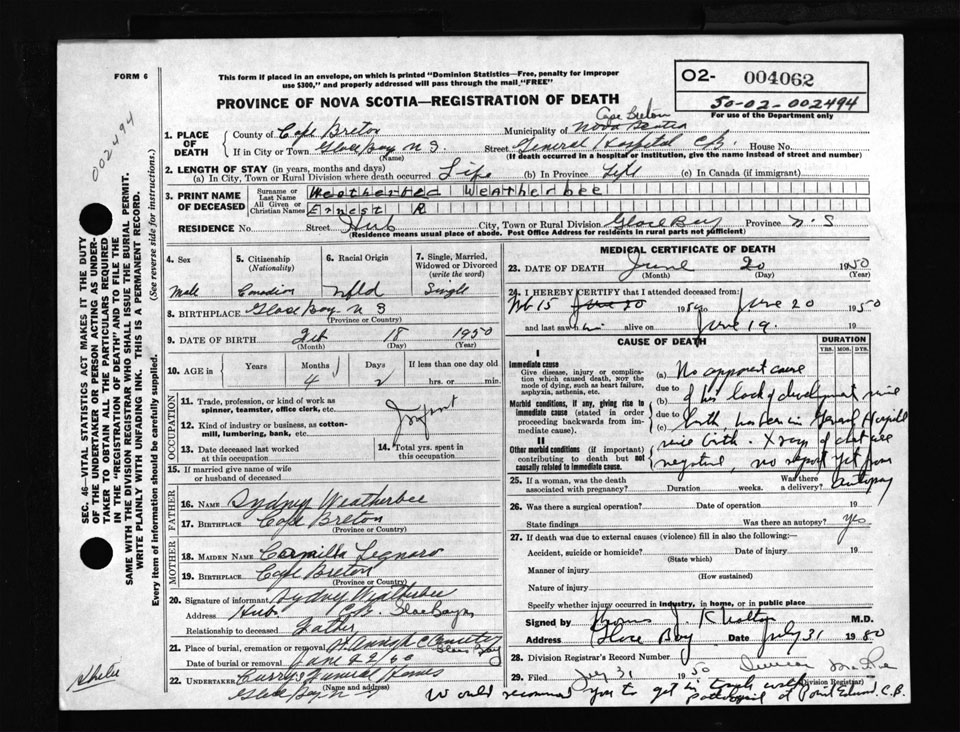 FORM 6
This form if placed in an envelope, on which is printed "Dominion Statistics—Free, penalty for improper
use $300," and properly addressed will pass through the mail "FREE"
O2- 004062
50-02-002494
For use of the Department only
PROVINCE OF NOVA SCOTIA—REGISTRATION OF DEATH
002494
1. PLACE OF DEATH
County of Cape Breton Municipality of Cape Breton Nova Scotia
If in City or Town Glace Bay N S (Name) Street General Hospital C.B. House No.
(If death occurred in a hospital or institution, give the name instead of street and number)
2. LENGTH OF STAY (in years, months and days)
(a) In City, Town or Rural Division where death occurred Life (b) In Province Life (c) In Canada (if immigrant)
3. PRINT NAME OF DECEASED
Surname or Last Name Weatherbee Weatherbee
All Given or Christian Names Ernest R
RESIDENCE No. Street Hub City, Town or Rural Division Glace Bay Province N S
(Residence means usual place of abode. Post Office Address for residents in rural parts not sufficient)
4. Sex Male
5. Citizenship (Nationality) Canadian
6. Racial Origin Nfld
7. Single, Married, Widowed or Divorced (write the word) Single
8. BIRTHPLACE Glace Bay N S
(Province or Country)
9. DATE OF BIRTH Feb 18 1950
(Month) (Day) (Year)
10. AGE in Years Months 4 Days 2 If less than one day old hrs. or min.
OCCUPATION
11. Trade, profession, or kind of work as spinner, teamster, office clerk, etc. Infant
12. Kind of industry or business, as cotton-mill, lumbering, bank, etc.
13. Date deceased last worked at this occupation
14. Total yrs. spent in this occupation
15. If married give name of wife or husband of deceased
FATHER
16. NAME Sydney Weatherbee
17. BIRTHPLACE Cape Breton
(Province or Country)
MOTHER
18. MAIDEN NAME
19. BIRTHPLACE Cape Breton
(Province or Country)
20. Signature of informant Sydney Weatherbee
Address Hub. C.B. Glace Bay
Relationship to deceased Father
21. Place of burial, cremation or removal St Annes C Cemetery Glace Bay
Date of burial or removal June 22 50
22. UNDERTAKER Curry's Funeral Home
(Name and address)
Glace Bay N S
MEDICAL CERTIFICATE OF DEATH
23. DATE OF DEATH June 20 1950
(Month) (Day) (Year)
24. I HEREBY CERTIFY that I attended deceased from:
June 20 19 June 20 1950
and last saw him alive on June 19. 19
CAUSE OF DEATH
DURATION
YRS. MOS. DYS.
I
Immediate cause
Give disease, injury or complication which caused death, NOT the mode of dying, such as heart failure, asphyxia, asthenia, etc.
Morbid conditions, if any, giving rise to immediate cause (stated in order proceeding backwards from immediate cause).
II
Other morbid conditions (if important) contributing to death but not causally related to immediate cause.
(a) No apparent cause
due to
(b) of his lack of development since
due to
(c) birth, has been in General Hospital
since birth. X ray of chest was
negative, no report yet from
autopsy
25. If a woman, was the death associated with pregnancy? Duration weeks. Was there a delivery?
26. Was there a surgical operation? Date of operation 19
State findings Was there an autopsy? Yes
27. If death was due to external causes (violence) fill in also the following:—
Accident, suicide or homicide? Date of injury 19
(State which)
Manner of injury
(How sustained)
Nature of injury
Specify whether injury occurred in industry, in home, or in public place
Signed by M.D.
Address Glace Bay Date July 31 1950
28. Division Registrar's Record Number
29. Filed July 31 1950
(Division Registrar)
Would recommend you to get in touch with
pathologist at Point Edward. C.B.
SEC. 46—VITAL STATISTICS ACT MAKES IT THE DUTY
OF THE UNDERTAKER OR PERSON ACTING AS UNDER-
TAKER TO OBTAIN ALL THE PARTICULARS REQUIRED
IN THE "REGISTRATION OF DEATH" AND TO FILE THE
SAME WITH THE DIVISION REGISTRAR WHO SHALL ISSUE THE BURIAL PERMIT.
WRITE PLAINLY WITH UNFADING INK. THIS IS A PERMANENT RECORD.
Every item of information should be carefully supplied. (See reverse side for instructions.)